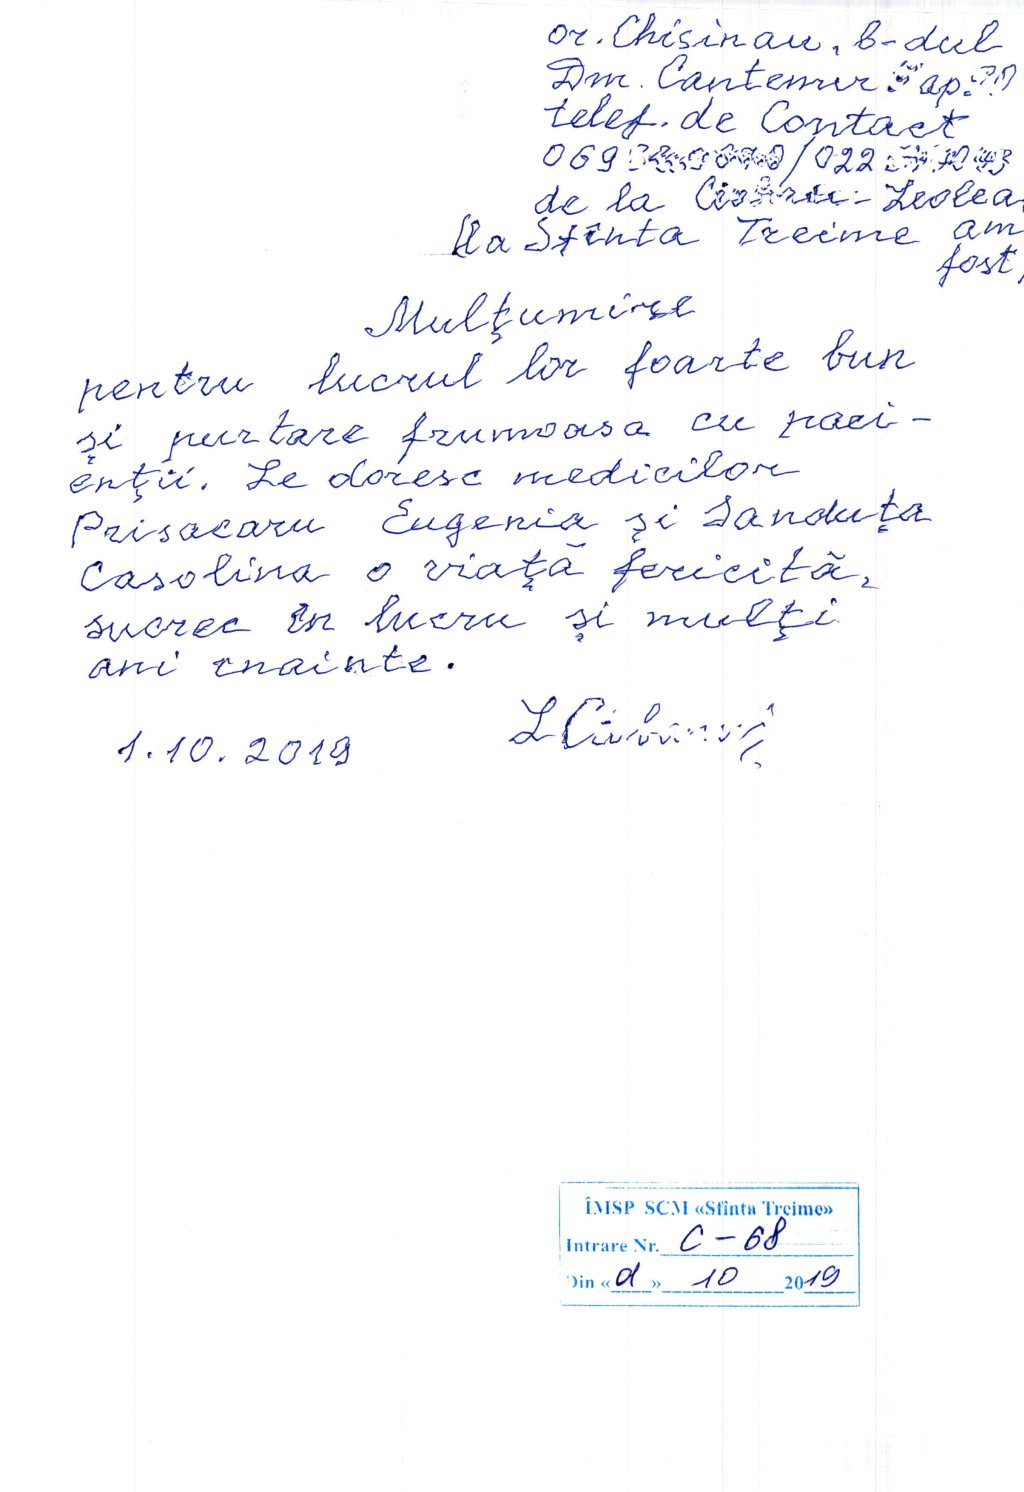 or. Chisinau, b-dul
Dm. Cantemir ap.
telef. de Contact
069 /022
de la
la Sfinta Treime am
fost,
Mulţumire
pentru lucrul lor foarte bun
şi purtare frumoasa cu paci-
enţii. Le doresc medicilor
Prisacaru Eugenia şi Sanduţa
Casolina o viaţă fericită,
sucrec în lucru şi mulţi
ani inainte.
1.10.2019
ÎMSP SCM «Sfînta Treime»
Intrare Nr. C-68
Din «d» 10 2019